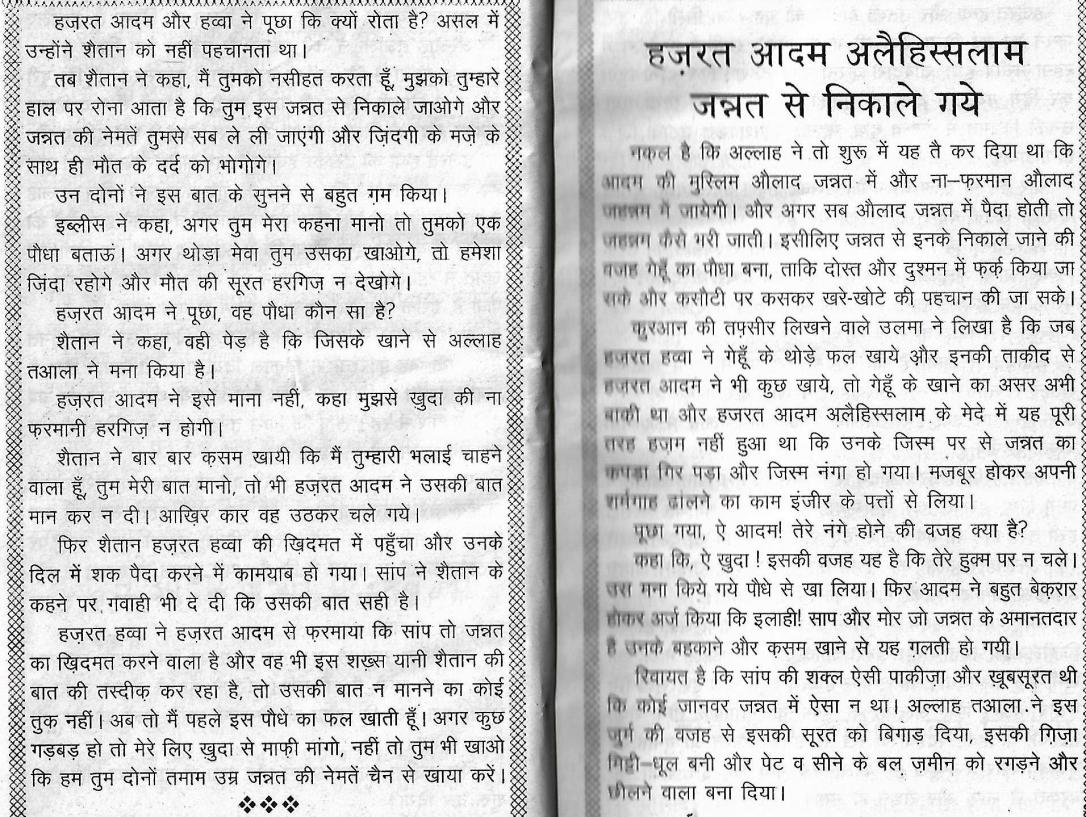 हज़रत आदम और हव्वा ने पूछा कि क्यों रोता है? असल में
उन्होंने शैतान को नहीं पहचानता था।
तब शैतान ने कहा, मैं तुमको नसीहत करता हूँ, मुझको तुम्हारे
हाल पर रोना आता है कि तुम इस जन्नत से निकाले जाओगे और
जन्नत की नेमतें तुमसे सब ले ली जाएंगी और ज़िंदगी के मज़े के
साथ ही मौत के दर्द को भोगोगे।
उन दोनों ने इस बात के सुनने से बहुत ग़म किया।
इब्लीस ने कहा, अगर तुम मेरा कहना मानो तो तुमको एक
पौधा बताऊं। अगर थोड़ा मेवा तुम उसका खाओगे, तो हमेशा
ज़िंदा रहोगे और मौत की सूरत हरगिज़ न देखोगे।
हज़रत आदम ने पूछा, वह पौधा कौन सा है?
शैतान ने कहा, वही पेड़ है कि जिसके खाने से अल्लाह
तआला ने मना किया है।
हज़रत आदम ने इसे माना नहीं, कहा मुझसे खुदा की ना
फरमानी हरगिज़ न होगी।
शैतान ने बार बार क़सम खायी कि मैं तुम्हारी भलाई चाहने
वाला हूँ, तुम मेरी बात मानो, तो भी हज़रत आदम ने उसकी बात
मान कर न दी। आख़िर कार वह उठकर चले गये।
फिर शैतान हज़रत हव्वा की ख़िदमत में पहुँचा और उनके
दिल में शक पैदा करने में कामयाब हो गया। सांप ने शैतान के
कहने पर गवाही भी दे दी कि उसकी बात सही है।
हज़रत हव्वा ने हज़रत आदम से फ़रमाया कि सांप तो जन्नत
का ख़िदमत करने वाला है और वह भी इस शख़्स यानी शैतान की
बात की तस्दीक़ कर रहा है, तो उसकी बात न मानने का कोई
तुक नहीं। अब तो मैं पहले इस पौधे का फल खाती हूँ। अगर कुछ
गड़बड़ हो तो मेरे लिए खुदा से माफ़ी मांगो, नहीं तो तुम भी खाओ
कि हम तुम दोनों तमाम उम्र जन्नत की नेमतें चैन से खाया करें।
हज़रत आदम अलैहिस्सलाम
जन्नत से निकाले गये
नक़ल है कि अल्लाह ने तो शुरू में यह तै कर दिया था कि
आदम की मुस्लिम औलाद जन्नत में और ना–फ़रमान औलाद
जहन्नम में जायेगी। और अगर सब औलाद जन्नत में पैदा होती तो
जहन्नम कैसे भरी जाती। इसीलिए जन्नत से इनके निकाले जाने की
वजह गेहूँ का पौधा बना, ताकि दोस्त और दुश्मन में फ़र्क़ किया जा
सके और कसौटी पर कसकर खरे-खोटे की पहचान की जा सके।
क़ुरआन की तफ़्सीर लिखने वाले उलमा ने लिखा है कि जब
हज़रत हव्वा ने गेहूँ के थोड़े फल खाये और इनकी ताकीद से
हज़रत आदम ने भी कुछ खाये, तो गेहूँ के खाने का असर अभी
बाक़ी था और हजरत आदम अलैहिस्सलाम के मेदे में यह पूरी
तरह हज़म नहीं हुआ था कि उनके जिस्म पर से जन्नत का
कपड़ा गिर पड़ा और जिस्म नंगा हो गया। मजबूर होकर अपनी
शर्मगाह ढांलने का काम इंजीर के पत्तों से लिया।
पूछा गया, ऐ आदम! तेरे नंगे होने की वजह क्या है?
कहा कि, ऐ खुदा ! इसकी वजह यह है कि तेरे हुक्म पर न चले।
उस मना किये गये पौधे से खा लिया। फिर आदम ने बहुत बेक़रार
होकर अर्ज़ किया कि इलाही! साप और मोर जो जन्नत के अमानतदार
है उनके बहकाने और क़सम खाने से यह ग़लती हो गयी।
रिवायत है कि सांप की शक्ल ऐसी पाकीज़ा और ख़ूबसूरत थी
कि कोई जानवर जन्नत में ऐसा न था। अल्लाह तआला ने इस
जुर्म की वजह से इसकी सूरत को बिगाड़ दिया, इसकी ग़िज़ा
मिट्टी–धूल बनी और पेट व सीने के बल ज़मीन को रगड़ने और
छीलने वाला बना दिया।